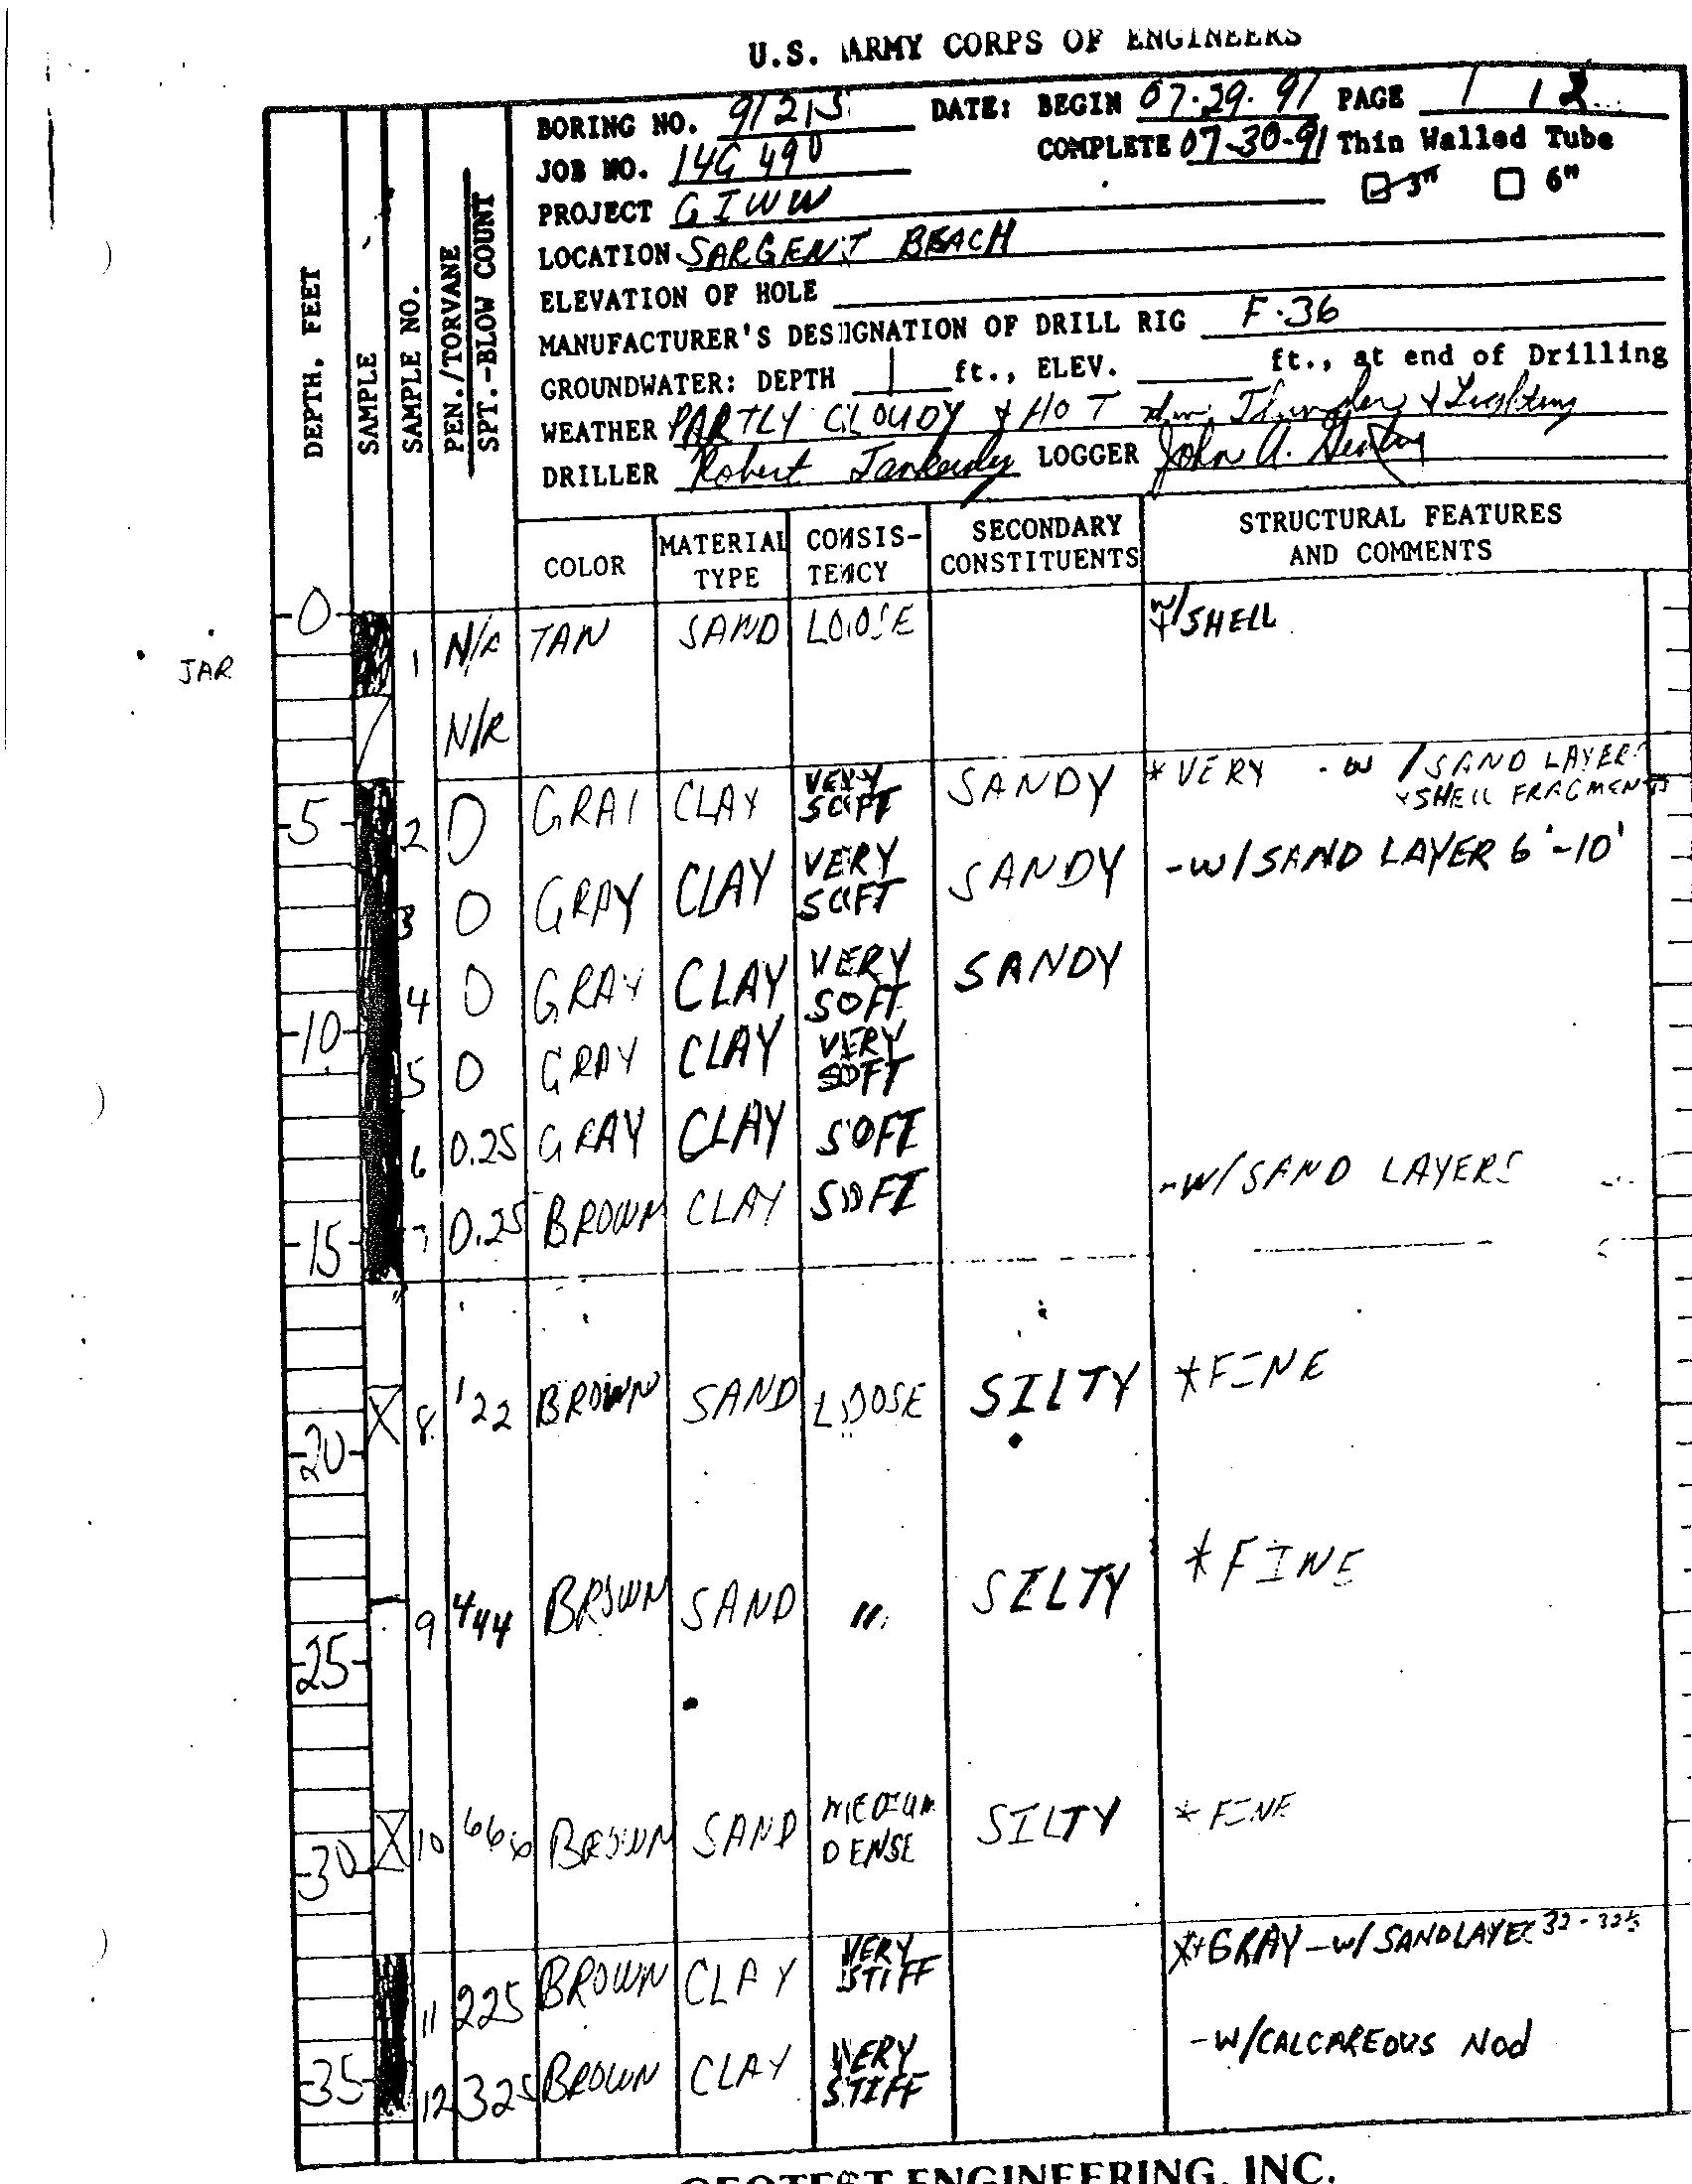 U.S. ARMY CORPS OF ENGINEERS
BORING NO. 91215 DATE: BEGIN 07.29.91 PAGE 1 / 2
JOB NO. 14G 490 COMPLETE 07-30-91 Thin Walled Tube
PROJECT GIWW 3" 6"
LOCATION SARGENT BEACH
ELEVATION OF HOLE
MANUFACTURER'S DESIGNATION OF DRILL RIG F-36
GROUNDWATER: DEPTH ft., ELEV. ft., at end of Drilling
WEATHER PARTLY CLOUDY & HOT
DRILLER Robert LOGGER John A.
DEPTH, FEET
SAMPLE
SAMPLE NO.
PEN./TORVANE
SPT.-BLOW COUNT
COLOR MATERIAL TYPE CONSISTENCY SECONDARY CONSTITUENTS STRUCTURAL FEATURES AND COMMENTS
0
JAR 1 N/R TAN SAND LOOSE W/SHELL
N/R
5 2 0 GRAY CLAY VERY SOFT SANDY *VERY -W/SAND LAYERS
& SHELL FRAGMENTS
3 0 GRAY CLAY VERY SOFT SANDY -W/SAND LAYER 6'-10'
4 0 GRAY CLAY VERY SOFT SANDY
10
5 0 GRAY CLAY VERY SOFT
6 0.25 GRAY CLAY SOFT
15 7 0.25 BROWN CLAY SOFT -W/SAND LAYERS
8 122 BROWN SAND LOOSE SILTY *FINE
20
9 444 BROWN SAND " SILTY *FINE
25
10 666 BROWN SAND MEDIUM DENSE SILTY *FINE
30
11 225 BROWN CLAY VERY STIFF *+GRAY -W/SANDLAYER 32-32½
35 12 325 BROWN CLAY VERY STIFF -W/CALCAREOUS Nod
GEOTEST ENGINEERING, INC.